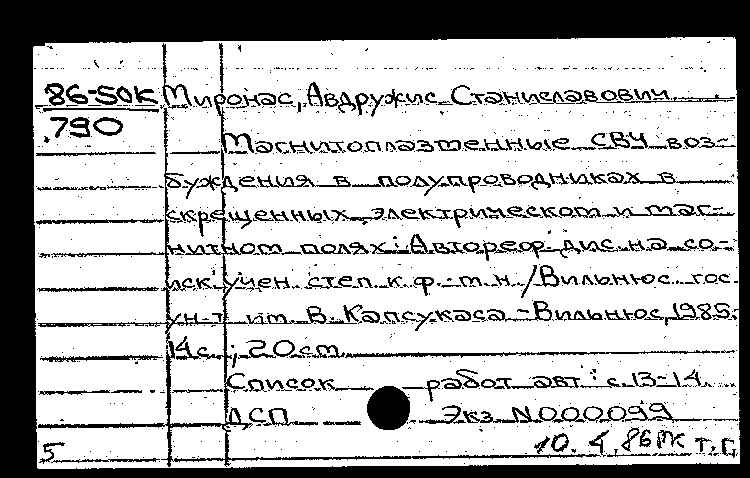 86-50К Миронас, Авдружис Станиславович
790
Магнитоплазменные СВЧ воз-
буждения в полупроводниках в
скрещенных электрическом и маг-
нитном полях: Автореф. дис. на со-
иск. учен. степ. к.ф.-т.н. / Вильнюс. гос.
ун-т им. В. Капсукаса - Вильнюс, 1985.
14с.; 20см.
Список работ авт.: с. 13-14.
ДСП Экз N000099
5 10. 4. 86 т.г.